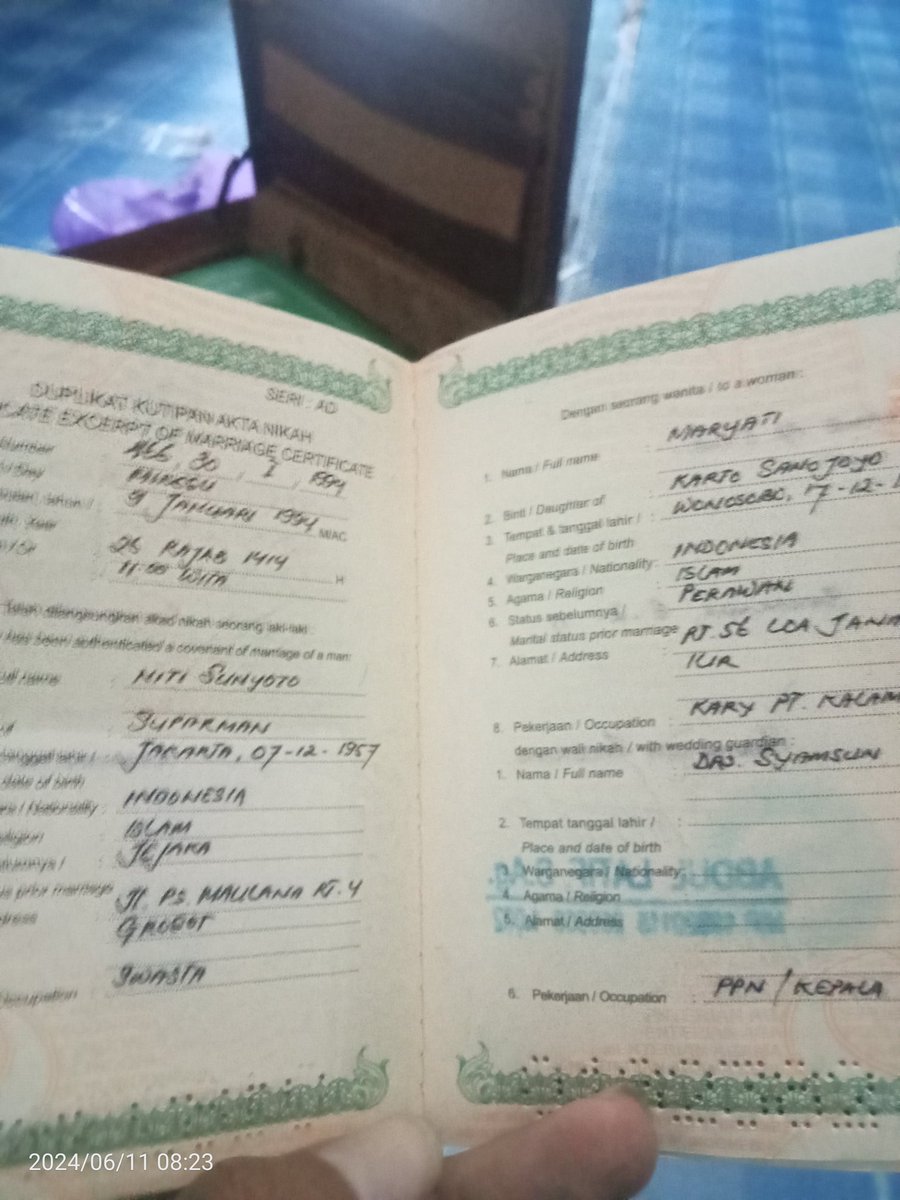 SERI : AD
DUPLIKAT KUTIPAN AKTA NIKAH
EXCERPT OF MARRIAGE CERTIFICATE
Number
30 / I / 1994
MINGGU
9 JANUARI 1994 M/AC
26 RAJAB 1414 H
11.00 WITA
Telah dilangsungkan akad nikah seorang laki-laki :
has been authenticated a covenant of marriage of a man:
full name : MITI SUNYOTO
SUPARMAN
JAKARTA, 07-12-1957
date of birth
/ Nationality : INDONESIA
religion : ISLAM
JEJAKA
prior marriage
JL. PS. MAULANA RT. 4
GROGOT
Occupation : SWASTA
Dengan seorang wanita / to a woman :
1. Nama / Full name : MARYATI
2. Binti / Daughter of : KARTO SANOJOYO
3. Tempat & tanggal lahir / : WONOSOBO, 7-12-1
Place and date of birth
4. Warganegara / Nationality : INDONESIA
5. Agama / Religion : ISLAM
6. Status sebelumnya / : PERAWAN
Marital status prior marriage
7. Alamat / Address : RT. 56 LOA JANA
ILIR
8. Pekerjaan / Occupation : KARY PT. KALAM
dengan wali nikah / with wedding guardian :
1. Nama / Full name : DRS. SYAMSUN
2. Tempat tanggal lahir / :
Place and date of birth
Warganegara / Nationality:
4. Agama / Religion :
5. Alamat / Address :
6. Pekerjaan / Occupation : PPN / KEPALA
2024/06/11 08:23